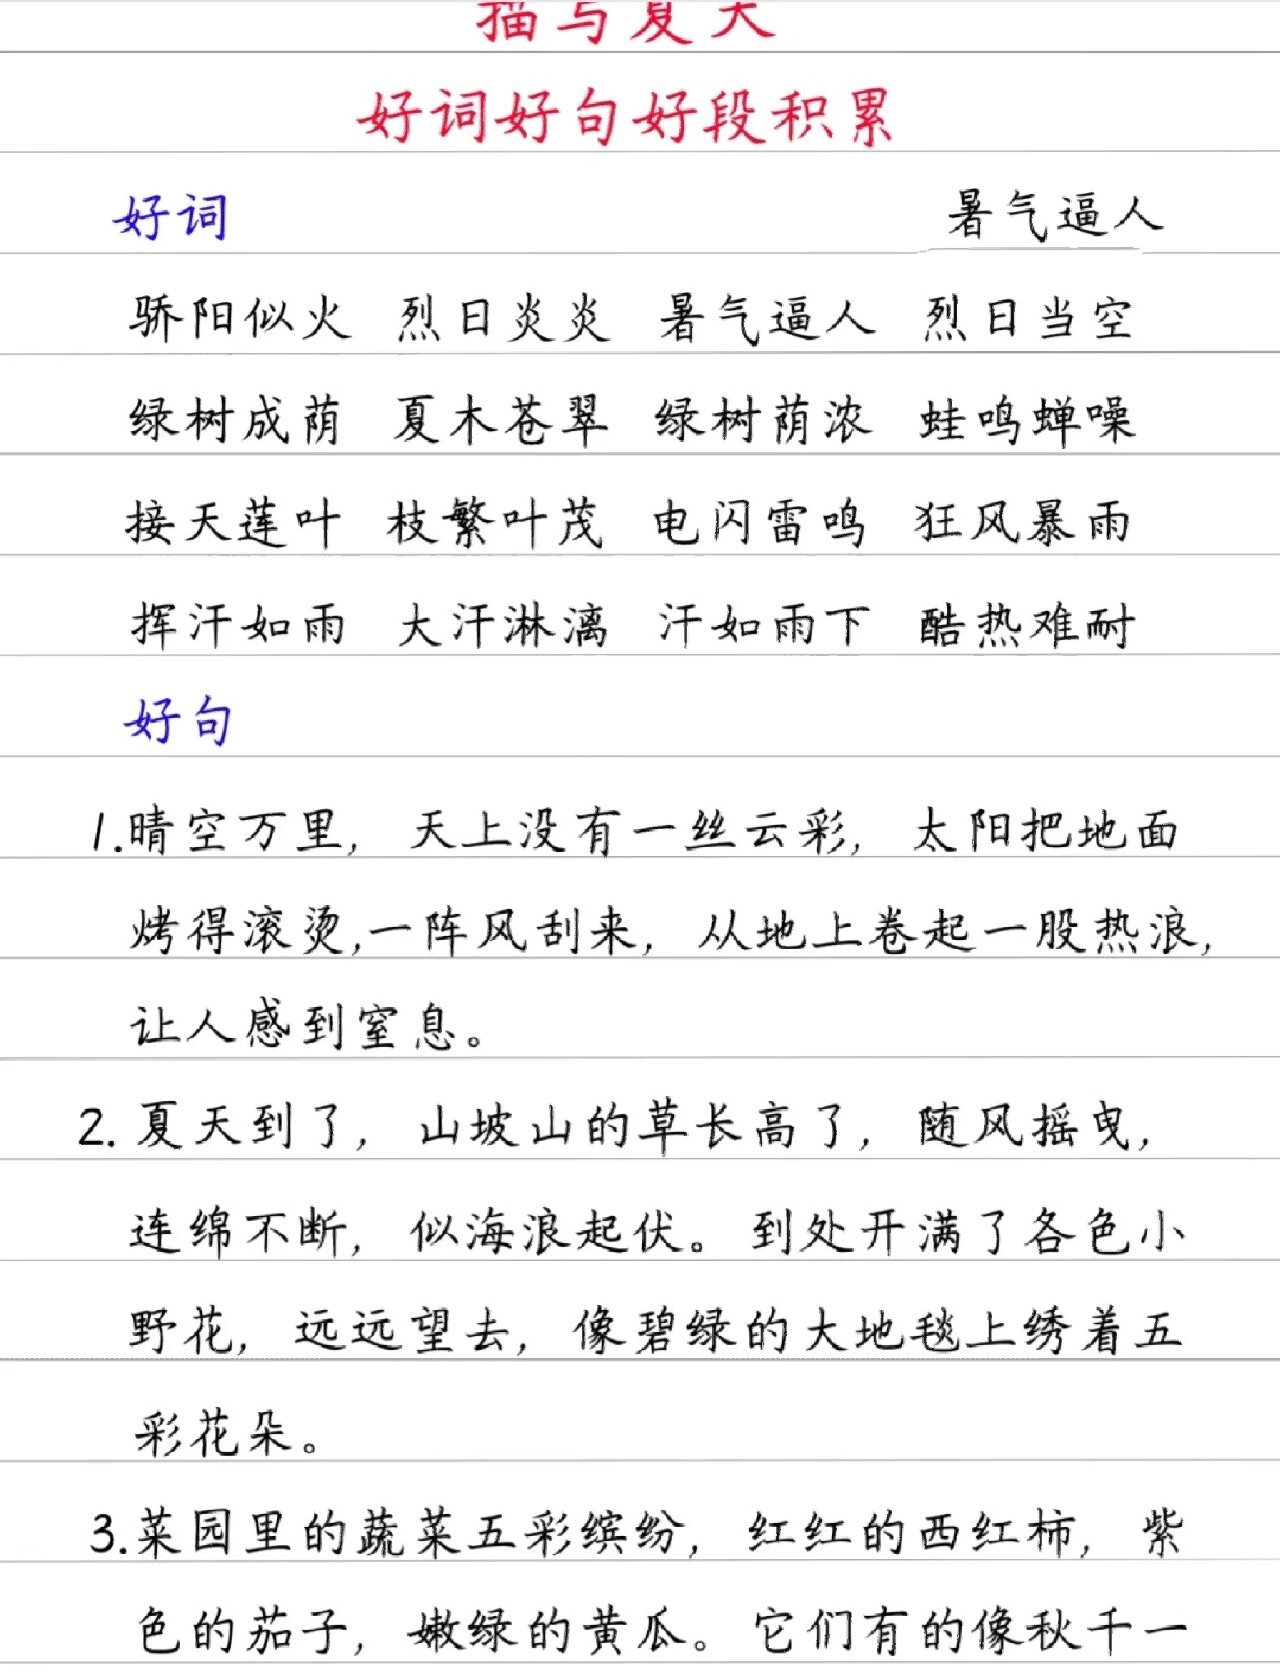 描写夏天
好词好句好段积累
好词 暑气逼人
骄阳似火 烈日炎炎 暑气逼人 烈日当空
绿树成荫 夏木苍翠 绿树荫浓 蛙鸣蝉噪
接天莲叶 枝繁叶茂 电闪雷鸣 狂风暴雨
挥汗如雨 大汗淋漓 汗如雨下 酷热难耐
好句
1.晴空万里，天上没有一丝云彩，太阳把地面
烤得滚烫,一阵风刮来，从地上卷起一股热浪，
让人感到窒息。
2.夏天到了，山坡山的草长高了，随风摇曳，
连绵不断，似海浪起伏。到处开满了各色小
野花，远远望去，像碧绿的大地毯上绣着五
彩花朵。
3.菜园里的蔬菜五彩缤纷，红红的西红柿，紫
色的茄子，嫩绿的黄瓜。它们有的像秋千一